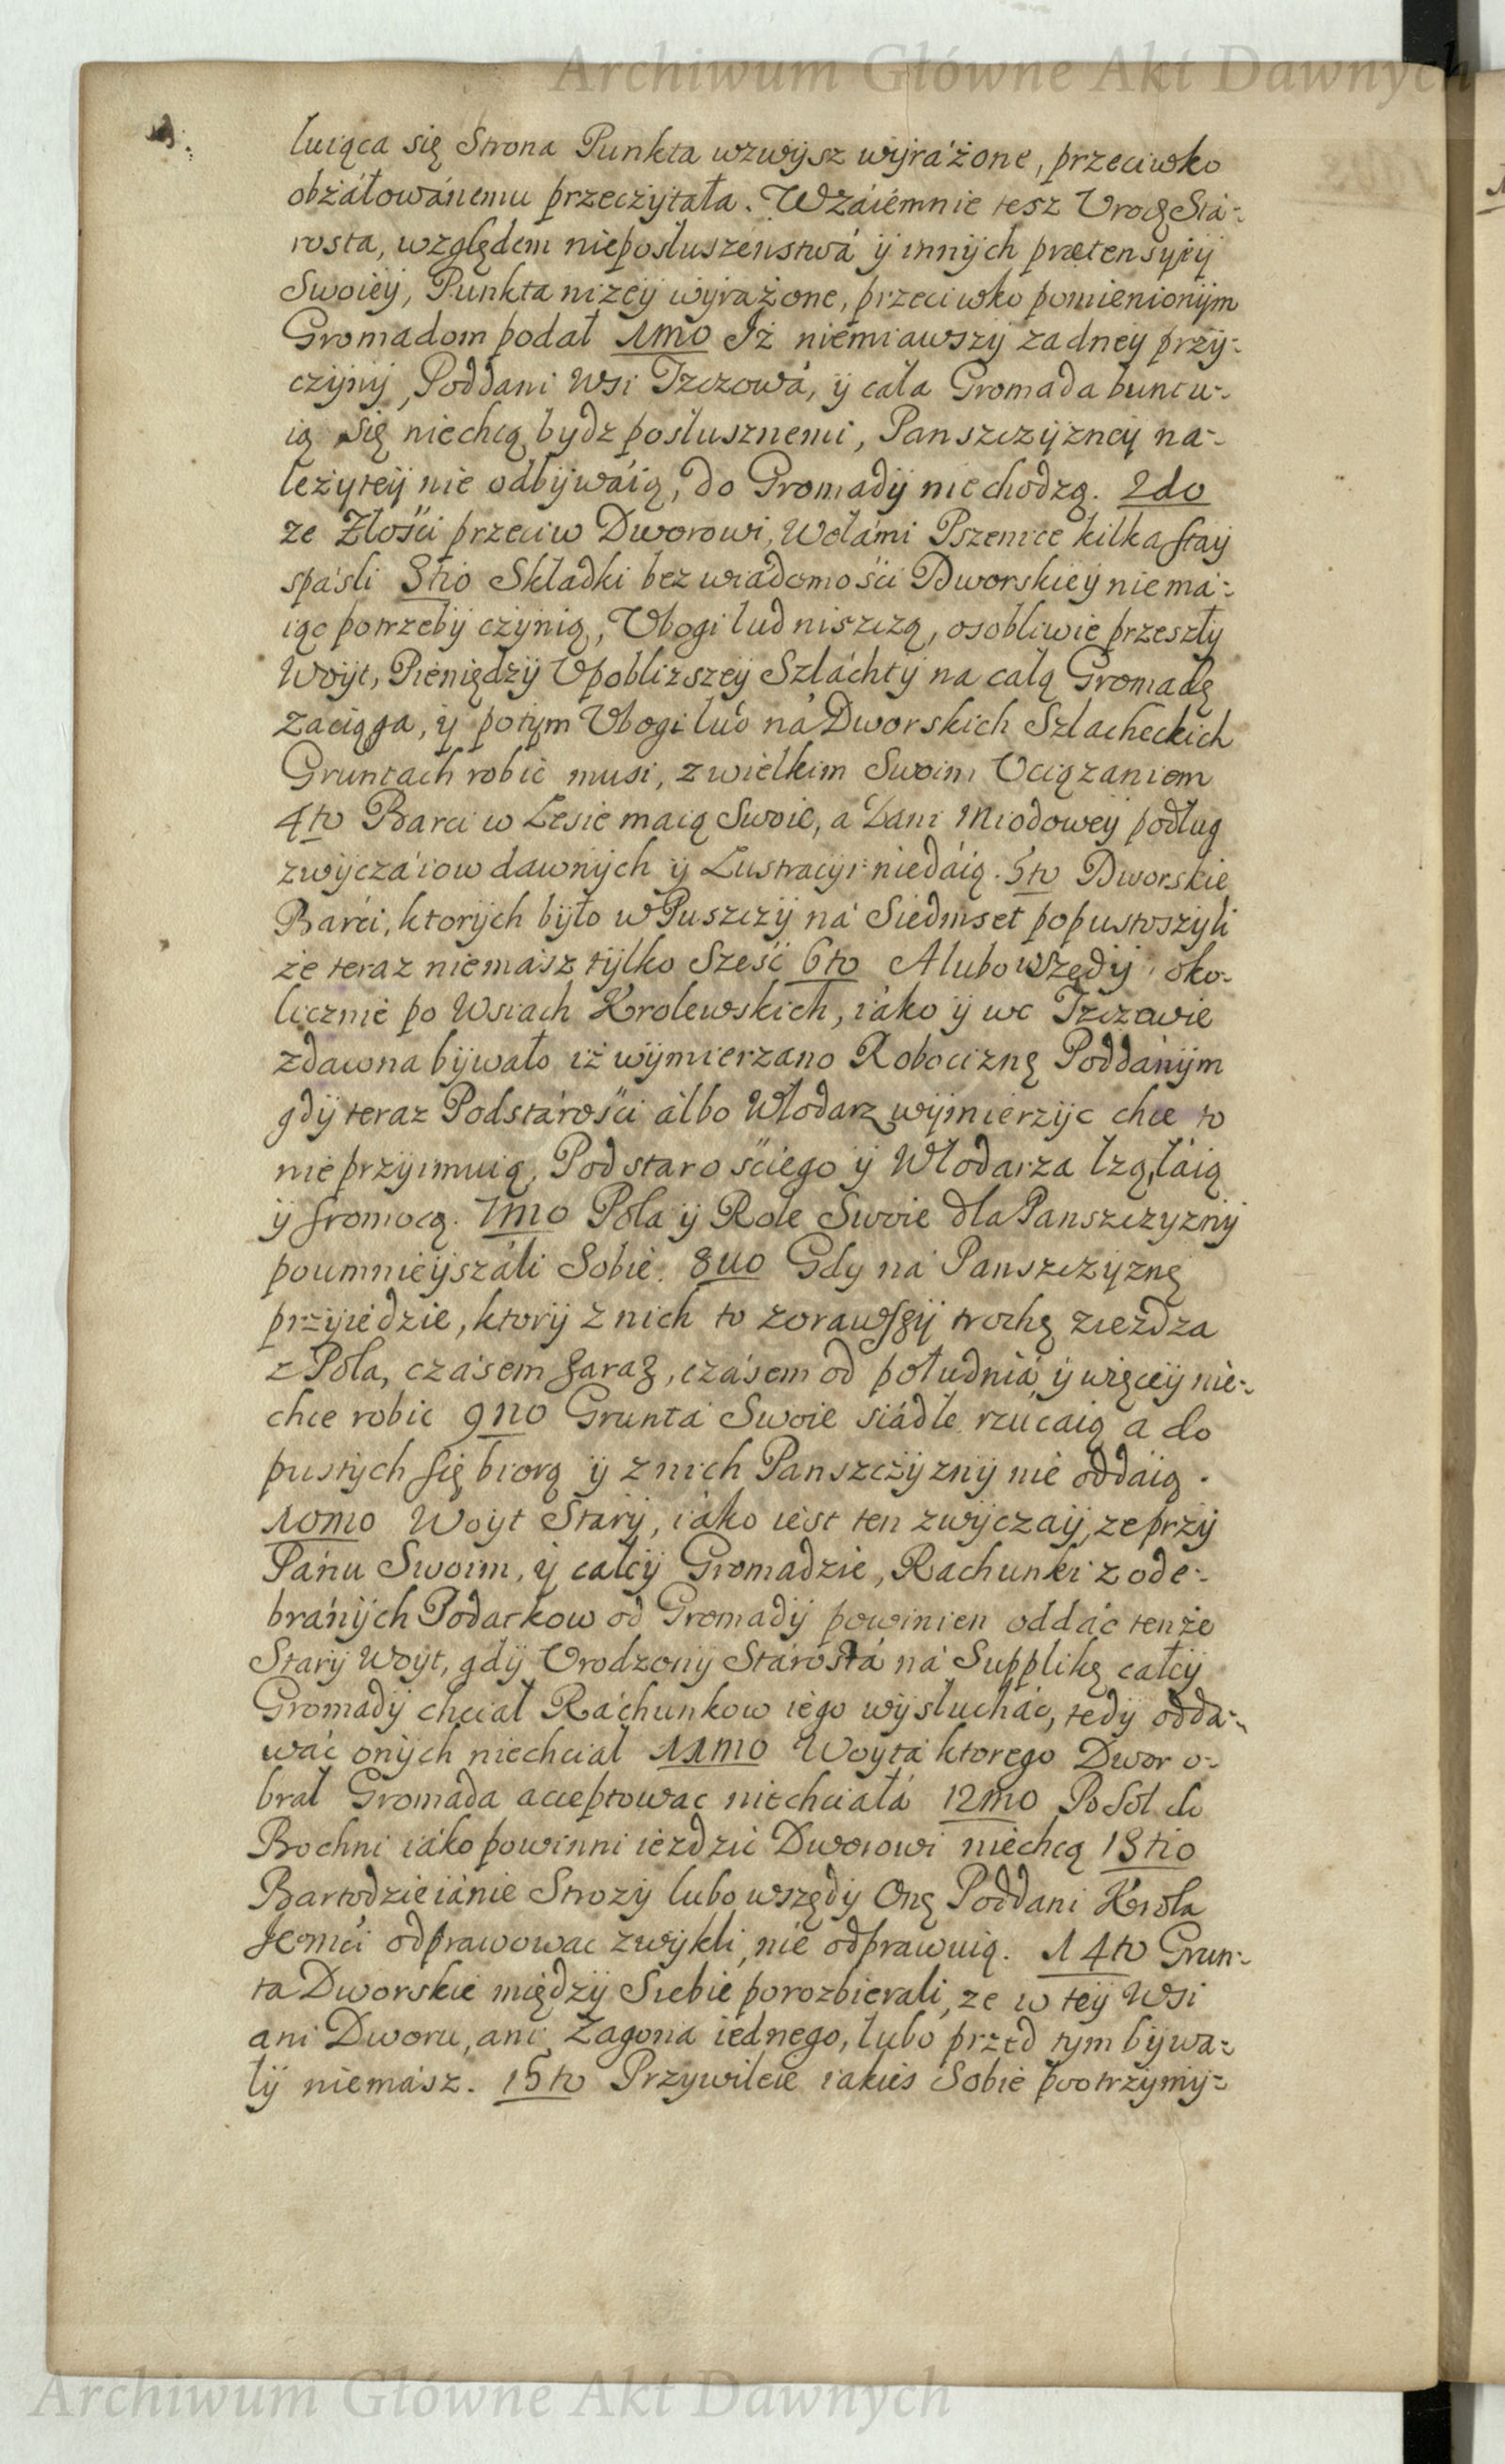 Archiwum Główne Akt Dawnych
luiąca się Strona Punkta wzwysz wyrażone, przeciwko
obżáłowánemu przeczytała. Wzáiemnie tesz Urodz Stá-
rosta, względem nieposłuszenstwá ÿ innÿch prætensyÿ
Swoiey, Punkta niżeÿ wÿrażone, przeciwko pomienionÿm
Gromadom podał 1mo Iż niemiawszÿ zadneÿ przÿ-
czÿnÿ, Poddani Wsi Tczowá, ÿ cała Gromada buntu-
ią się niechcą bydz posłusznemi, Panszczÿzneÿ na-
leżyteÿ nie odbÿwáią, do Gromadÿ niechodzą. 2do
ze Złości przeciw Dworowi, Wołámi Pszenice kilka staÿ
spásli 3tio Składki bez wiádomości Dworskieÿ nie má-
iąc potrzebÿ czÿnią, Ubogi lud niszczą, osobliwie przeszłÿ
Woÿt, Pieniędzÿ U pobliższeÿ Szláchtÿ na całą Gromadę
záciąga, ÿ potÿm Ubogi lud ná Dworskich Szlacheckich
Gruntach robic musi, z wielkim Swoim Uciązaniem
4to Barci w Lesie maią Swoie, a Dani Miodoweÿ podług
zwÿczáiow dawnÿch ÿ Lustracyi niedáią. 5to Dworskie
Barci, ktorÿch bÿło w Puszczÿ ná Siedmset popustoszÿli
że teraz niemász tÿlko Sześć 6to A lubo wszędÿ oko-
licznie po Wsiach Krolewskich, iáko ÿ we Tczowie
zdawna bÿwało iż wÿmierzano Robociznę Poddánÿm
gdÿ teraz Podstárości álbo Włodarz wÿmierzÿc chce to
nie przÿimuią, Podstarościego ÿ Włodarza lzą, łáią
ÿ sromocą. 7mo Pola ÿ Role Swoie dla Panszczyznÿ
poumnieÿszáli Sobie. 8uo Gdy ná Panszczÿznę
przÿiedzie, ktorÿ z nich to zorawszÿ trochę zieżdza
z Pola, czásem zaraz, czásem od południá ÿ więceÿ nie-
chce robic 9no Gruntá Swoie siádłe rzucaią a do
pustÿch się biorą ÿ z nich Panszczÿznÿ nie oddáią.
10mo Woÿt Starÿ, iáko iest ten zwÿczaÿ, ze przÿ
Pánu Swoim, ÿ całeÿ Gromadzie, Rachunki z ode-
bránÿch Podatkow od Gromadÿ powinien oddác tenże
Starÿ Woÿt, gdÿ Urodzonÿ Stárostá ná Supplikę całeÿ
Gromadÿ chciał Ráchunkow iego wÿsłuchác, tedÿ oddá-
wác onÿch niechciał 11mo Woÿtá ktorego Dwor o-
brał Gromada acceptowac niechciałá 12mo Po Sol do
Bochni iáko powinni iezdzić Dworowi niechcą 13tio
Bartodzieiánie Strozÿ lubo wszędÿ Onę Poddani Krola
Jemći odprawowac zwÿkli, nie odprawuią. 14to Grun-
ta Dworskie międzÿ Siebie porozbierali, ze w teÿ Wsi
ani Dworu, ani Zagoná iednego, lubo przed tÿm bÿwa-
łÿ niemász. 15to Przywileie iakies Sobie pootrzÿmÿ-
Archiwum Główne Akt Dawnych